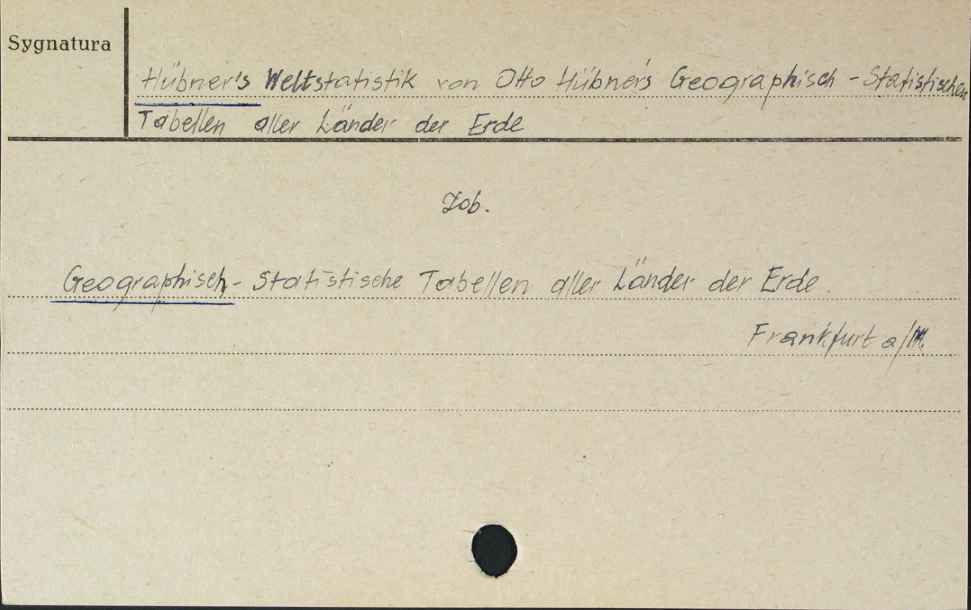 Sygnatura
Hübner's Weltstatistik von Otto Hübner's Geographisch - Statistischen
Tabellen aller Länder der Erde
Zob.
Geographisch - Statistische Tabellen aller Länder der Erde.
Frankfurt a/M.